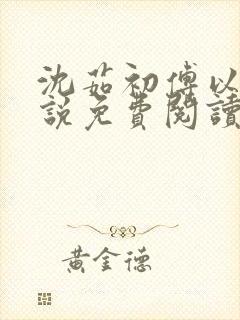 沈茹初傅以
說免費閱讀
黃金德